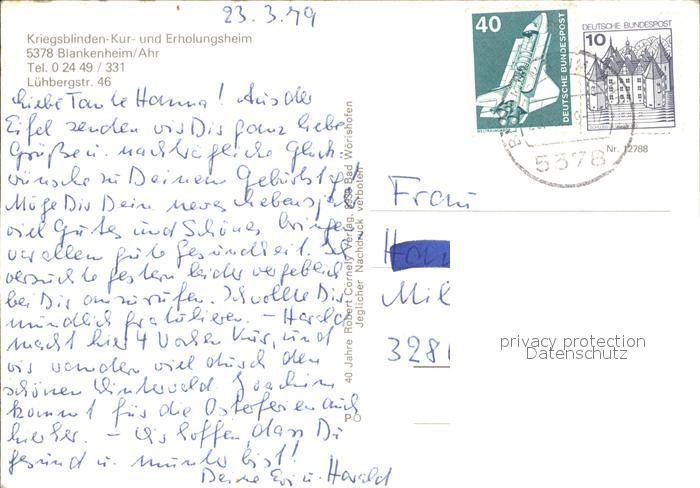 23.3.79
Kriegsblinden-Kur- und Erholungsheim
5378 Blankenheim/Ahr
Tel. 0 24 49 / 331
Lühbergstr. 46
Liebe Tante Hanna! Aus der
Eifel senden wir Dir ganz liebe
Grüße u. nachträgliche Glück-
wünsche zu Deinem Geburtstag.
Möge Dir Dein neues Lebensjahr
viel Gutes und Schönes bringen
vor allem gute Gesundheit. Ich
versuchte gestern leider vergeblich
bei Dir anzurufen. Ich wollte Dir
mündlich gratulieren. – Harald
macht hier 4 Wochen Kur, und
wir wandern viel durch den
schönen Winterwald. Joachim
kommt für die Osterferien auch
hierher. – Wir hoffen, dass Du
gesund u. munter bist!
Deine Evi u. Harald
40 Jahre Robert Cornely Verlag, 8939 Bad Wörishofen
Jeglicher Nachdruck verboten
PÖ
40
DEUTSCHE BUNDESPOST
WELTRAUMLABOR
DEUTSCHE BUNDESPOST
10
SCHLOSS
5378
Nr. 12788
Frau
Han
Mil
3281
privacy protection
Datenschutz